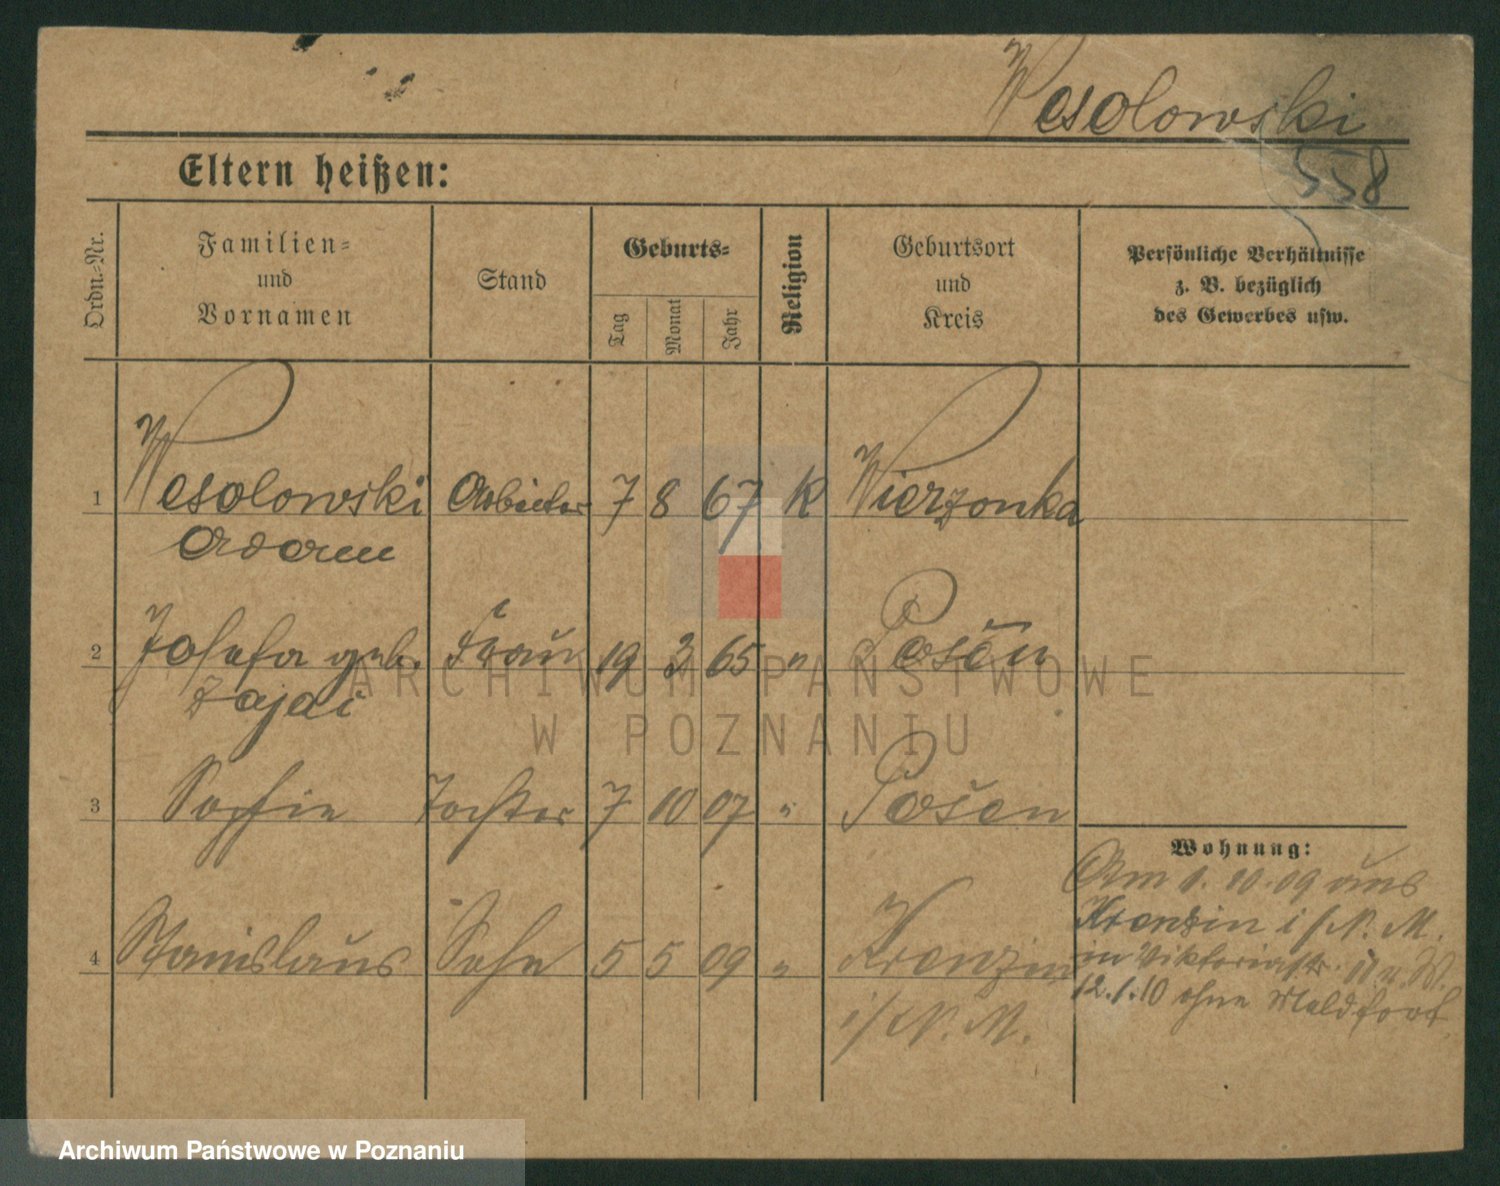 Wesolowski
558
Eltern heißen:
Ordn.-Nr.
Familien-
und
Vornamen
Stand
Geburts-
Tag
Monat
Jahr
Religion
Geburtsort
und
Kreis
Persönliche Verhältnisse
z. B. bezüglich
des Gewerbes usw.
1 Wesolowski Arbeiter 7 8 67 K Wierzonka
Adam
2 Josefa geb. Frau 19 3 65 " Posen
Zajac
3 Sofie Tochter 7 10 07 " Posen
4 Stanislaus Sohn 5 5 09 " Krenzin
i/N. M.
Wohnung:
Am 1. 10. 09 aus
Krenzin i/N. M.
in Viktoriastr.
12.1.10 ohne Meldg fort
ARCHIWUM PAŃSTWOWE
W POZNANIU
Archiwum Państwowe w Poznaniu